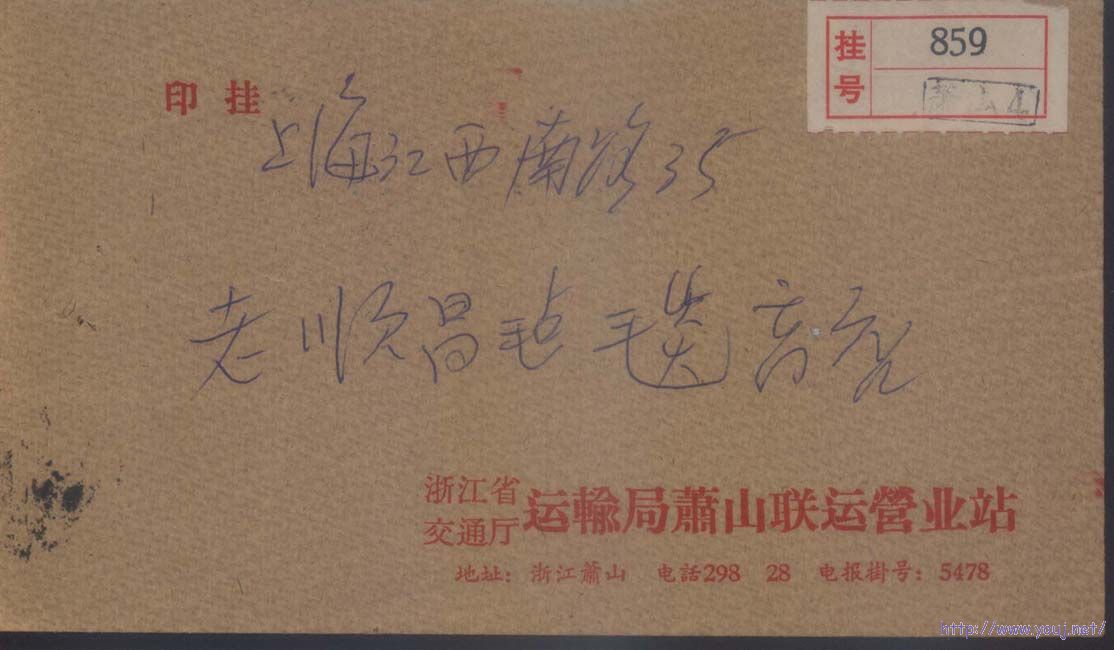 挂号 859
印 挂
上海江西南路35
老顺昌毡毛毯商店
浙江省交通厅 运输局萧山联运營业站
地址：浙江萧山 电話298 28 电报掛号：5478
http://www.youj.net/